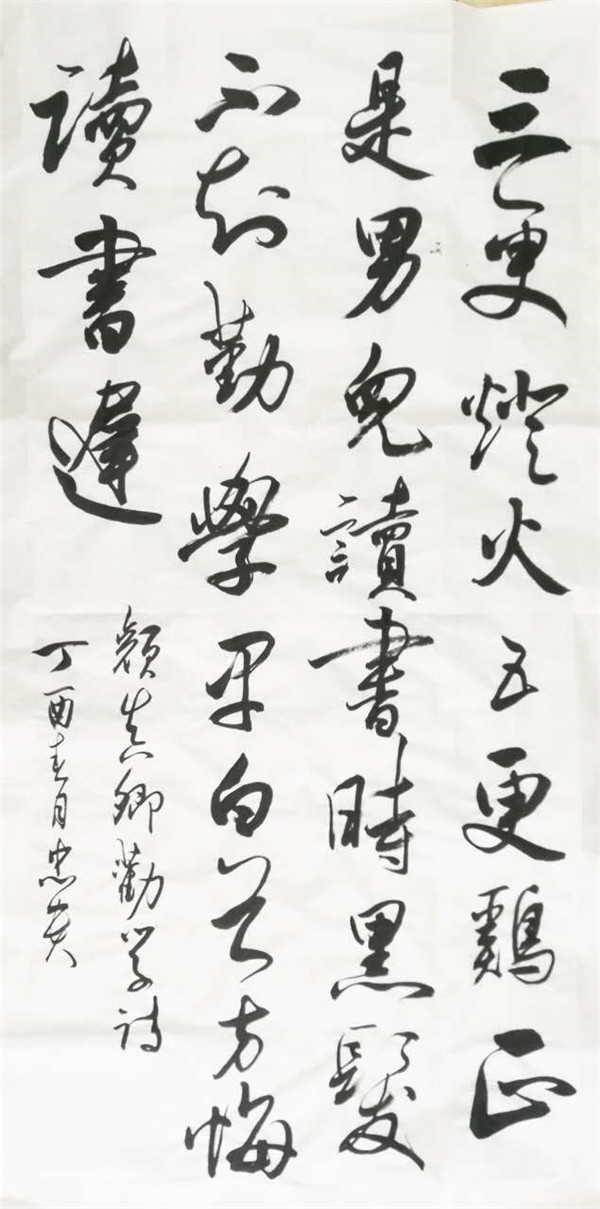 三更燈火五更鷄正
是男兒讀書時黑髮
不知勤學早白首方悔
讀書遲
顏真卿勸學詩
丁酉春月忠